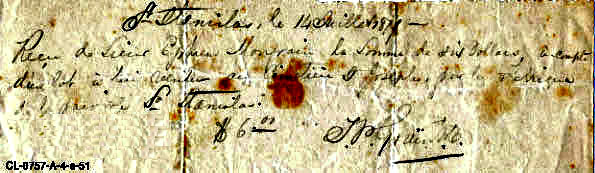 St Stanislas, le 14 Juillet 187 —
Reçu de Sieur Ephrem Mongrain la somme de six dollars, à compte
d'un lot à lui au cimetière St Joseph, par la Fabrique
de la paroisse St Stanislas.
$ 6.00 J. P.
CL-0757-A-4-e-51